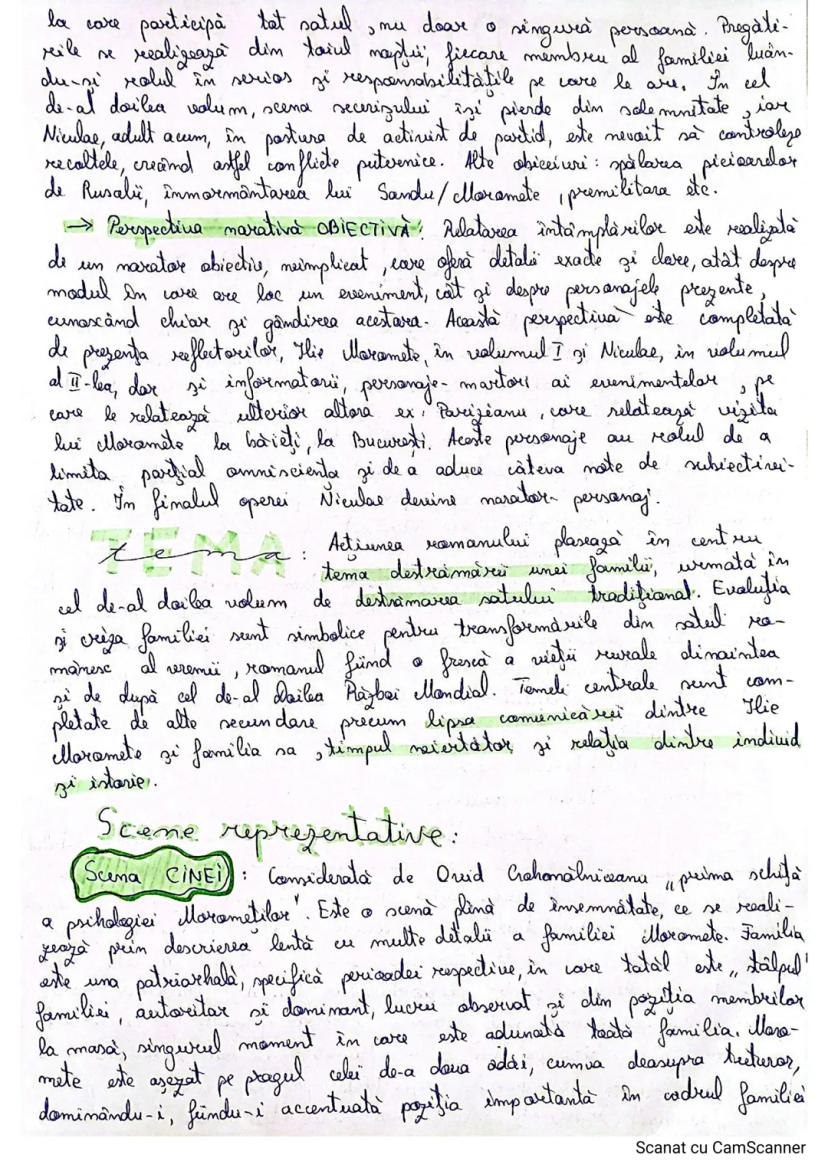 la care participă tot satul, nu doar o singură persoană. Pregăti-
rile se realizează din toiul nopții, fiecare membru al familiei luân-
du-și rolul în serios și responsabilitățile pe care le are. În cel
de-al doilea volum, scena secerișului își pierde din solemnitate, iar
Niculae, adult acum, în postura de activist de partid, este nevoit să controleze
recoltele, creând astfel conflicte puternice. Alte obiceiuri: spălarea picioarelor
de Rusalii, înmormântarea lui Sandu/Moromete, premilitara etc.
→ Perspectiva narativă OBIECTIVĂ: Relatarea întâmplărilor este realizată
de un narator obiectiv, neimplicat, care oferă detalii exacte și clare, atât despre
modul în care are loc un eveniment, cât și despre personajele prezente,
cunoscând chiar și gândirea acestora. Această perspectivă este completată
de prezența reflectorilor, Ilie Moromete, în volumul I și Niculae, în volumul
al II-lea, dar și informatorii, personaje-martori ai evenimentelor, pe
care le relatează ulterior altora ex: Parizianu, care relatează vizita
lui Moromete la băieți, la București. Aceste personaje au rolul de a
limita parțial omnisciența și de a aduce câteva note de subiectivi-
tate. În finalul operei Niculae devine narator-personaj.
TEMA
tema: Acțiunea romanului plasează în centru
tema destrămării unei familii, urmată în
cel de-al doilea volum de destrămarea satului tradițional. Evoluția
și criza familiei sunt simbolice pentru transformările din satul ro-
mânesc al vremii, romanul fiind o frescă a vieții rurale dinaintea
și de după cel de-al Doilea Război Mondial. Temele centrale sunt com-
pletate de alte secundare precum lipsa comunicării dintre Ilie
Moromete și familia sa, timpul neiertător, și relația dintre individ
și istorie.
Scene reprezentative:
Scena CINEI: Considerată de Ovid Crohmălniceanu „prima schiță
a psihologiei Moromeților". Este o scenă plină de însemnătate, ce se reali-
zează prin descrierea lentă cu multe detalii a familiei Moromete. Familia
este una patriarhală, specifică perioadei respective, în care tatăl este „stâlpul"
familiei, autoritar și dominant, lucru observat și din poziția membrilor
la masă, singurul moment în care este adunată toată familia. Moro-
mete este așezat pe pragul celei de-a doua odăi, cumva deasupra tuturor,
dominându-i, fiindu-i accentuată poziția importantă în cadrul familiei
Scanat cu CamScanner